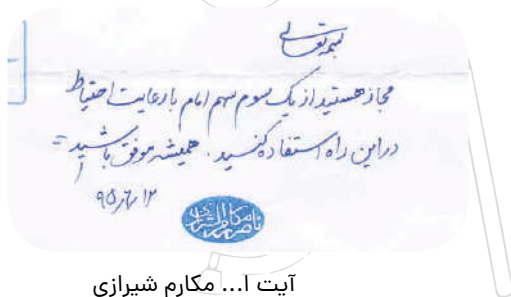 بسمه تعالی
مجاز هستید از یک سوم سهم امام با رعایت احتیاط
در این راه استفاده کنید. همیشه موفق باشید
ناصر مکارم الشیرازی
آیت ا... مکارم شیرازی